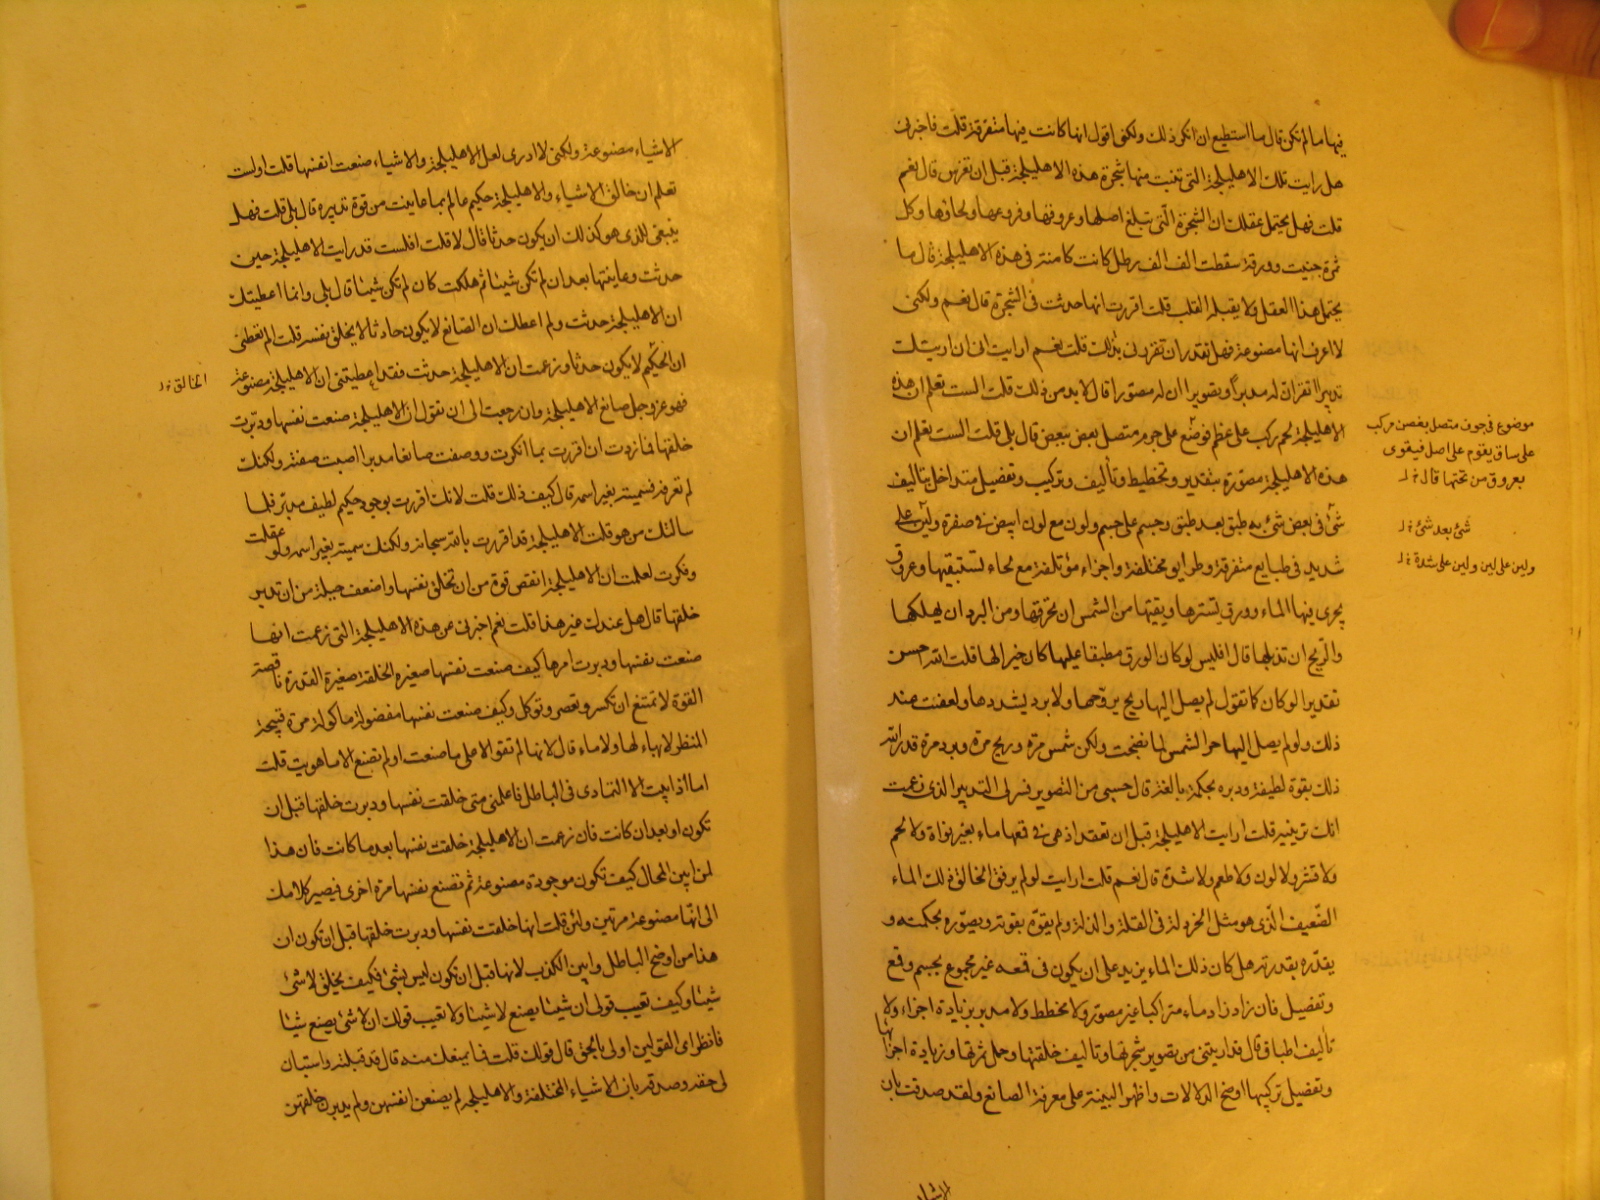 فيها ما لم تكن قال ما استطيع ان انكر ذلك ولكنى اقول انها كانت فيها متفرقة قلت فاخبرنى
هل رايت تلك الاهليلجة التى تنبت منها شجرة هذه الاهليلجة قبل ان تغرس قال نعم
قلت فهل يحتمل عقلك ان الشجرة الّتى تبلغ اصلها وعروقها وفروعها ولحاؤها وكل
ثمرة جنيت وورقة سقطت الف الف رطل كانت كامنة فى هذه الاهليلجة قال ما
يحتمل هذا العقل ولا يقبله القلب قلت اقررت انها حدثت فى الشجرة قال نعم ولكنى
لا اعرف انها مصنوعة فهل تقدر ان تقررنى بذلك قلت نعم ارايت انى ان اريتك
تدبيرا اتقر ان له مدبرا وتصويرا ان له مصورا قال لابد من ذلك قلت الست تعلم ان هذه
الاهليلجة لحم ركب على عظم فوضع على جرم متصل بعض ببعض قال بلى قلت الست تعلم ان
هذه الاهليلجة مصوّرة بتقدير وتخطيط وتأليف وتركيب وتفضيل متداخل بتأليف
شئ فى بعض شئ به طبق بعد طبق وجسم على جسم ولون مع لون ابيض فى صفرة ولين على
شديد فى طبايع متفرقة وطرايق مختلفة واجزاء مؤتلفة مع لحاء تستبقيها وعروق
يجرى فيها الماء وورق يسترها ويقيها من الشمس ان تحرقها ومن البرد ان يهلكها
والريح ان تذبلها قال افليس لو كان الورق مطبقا عليها كان خيرا لها قلت الله احسن
تقديرا لو كان كما تقول لم يصل اليها ريح يروّحها ولا برد يشددها ولعفنت عند
ذلك ولو لم يصل اليها حر الشمس لما نضجت ولكن شمس مرة وريح مرة وبرد مرة قدر الله
ذلك بقوة لطيفة ودبره بحكمة بالغة قال حسبى من التصوير فسر لى التدبير الذى زعمت
انك ترينيه قلت ارايت الاهليلجة قبل ان تعقد اذ هى فى قمعها ماء بغير نواة ولا لحم
ولا قشر ولا لون ولا طعم ولا شدة قال نعم قلت ارايت لو لم يرفق الخالق ذلك الماء
الضّعيف الّذى هو مثل الخردلة فى القلة والذلة ولم يقوّه بقوته ويصوّره بحكمته و
يقدّره بقدرته هل كان ذلك الماء يزيد على ان يكون فى قمعه غير مجموع بجسم وقمع
وتفصيل فان زاد زاد ماء متراكبا غير مصور ولا مخطط ولا مدبر بزيادة اجزاء ولا
تأليف اطباق قال قد اريتنى من تصوير شجرتها وتأليف خلقتها وحمل ثمرتها وزيادة اجزائها
وتفضيل تركيبها اوضح الدلالات واظهر البينة على معرفة الصانع ولقد صدقت بان
الاشياء
موضوع فى جوف متصل بغصن مركب
على ساق يقوم على اصل فيقوى
بعروق من تحتها قال خ ل
شئ بعد شئ خ ل
ولين على لين ولين على شدة خ ل
الاشياء مصنوعة ولكنى لا ادرى لعل الاهليلجة والاشياء صنعت انفسها قلت اولست
تعلم ان خالق الاشياء والاهليلجة حكيم عالم بما عاينت من قوة تدبيره قال بلى قلت فهل
ينبغى للذى هو كذلك ان يكون حدثا قال لا قلت افلست قد رايت الاهليلجة حين
حدثت وعاينتها بعد ان لم تكن شيئا ثم هلكت كان لم تكن شيئا قال بلى وانما اعطيتك
ان الاهليلجة حدثت ولم اعطك ان الصانع لا يكون حادثا لا يخلق نفسه قلت الم تعطنى
ان الحكيم لا يكون حدثا وزعمت ان الاهليلجة حدثت فقد اعطيتنى ان الاهليلجة مصنوعة
فهو عز وجل صانع الاهليلجة وان رجعت الى ان تقول ان الاهليلجة صنعت نفسها ودبّرت
خلقها فما زدت ان اقررت بما انكرت ووصفت صانعا مدبرا اصبت صفته ولكنك
لم تعرفه فسميته بغير اسمه قال كيف ذلك قلت لانك اقررت بوجود حكيم لطيف مدبر فلما
سالتك من هو قلت الاهليلجة قد اقررت بالله سبحانه ولكنك سميته بغير اسمه ولو عقلت
وفكرت لعلمت ان الاهليلجة انقص قوة من ان تخلق نفسها واضعف حيلة من ان تدبر
خلقها قال هل عندك غير هذا قلت نعم اخبرنى عن هذه الاهليلجة التى زعمت انها
صنعت نفسها ودبرت امرها كيف صنعت نفسها صغيره الخلقة صغيرة القدرة ناقصة
القوة لا تمتنع ان تكسر وتعصر وتوكل وكيف صنعت نفسها مفضولة ماكولة مرة قبيحة
المنظر لا بهاء لها ولا ماء قال لانها لم تقو الا على ما صنعت او لم تصنع الا ما هويت قلت
اما اذا ابيت الا التمادى فى الباطل فاعلمنى متى خلقت نفسها ودبرت خلقها قبل ان
تكون او بعد ان كانت فان زعمت ان الاهليلجة خلقت نفسها بعد ما كانت فان هذا
لمن ابين المحال كيف تكون موجودة مصنوعة ثم تصنع نفسها مرة اخرى فيصير كلامك
الى انّها مصنوعة مرتين ولئن قلت انها خلقت نفسها ودبرت خلقها قبل ان تكون ان
هذا من اوضح الباطل وابين الكذب لانها قبل ان تكون ليس بشئ فكيف يخلق لا شئ
شيئا وكيف تعيب قولى ان شيئا يصنع لا شيئا ولا تعيب قولك ان لا شئ يصنع شيئا
فانظر اى القولين اولى بالحق قال قولك قلت فما يمنعك منه قال قد قبلته واستبان
لى حقه وصدقه بان الاشياء المختلفة والاهليلجة لم يصنعن انفسهن ولم يدبرن خلقهن
الخالق خ ل